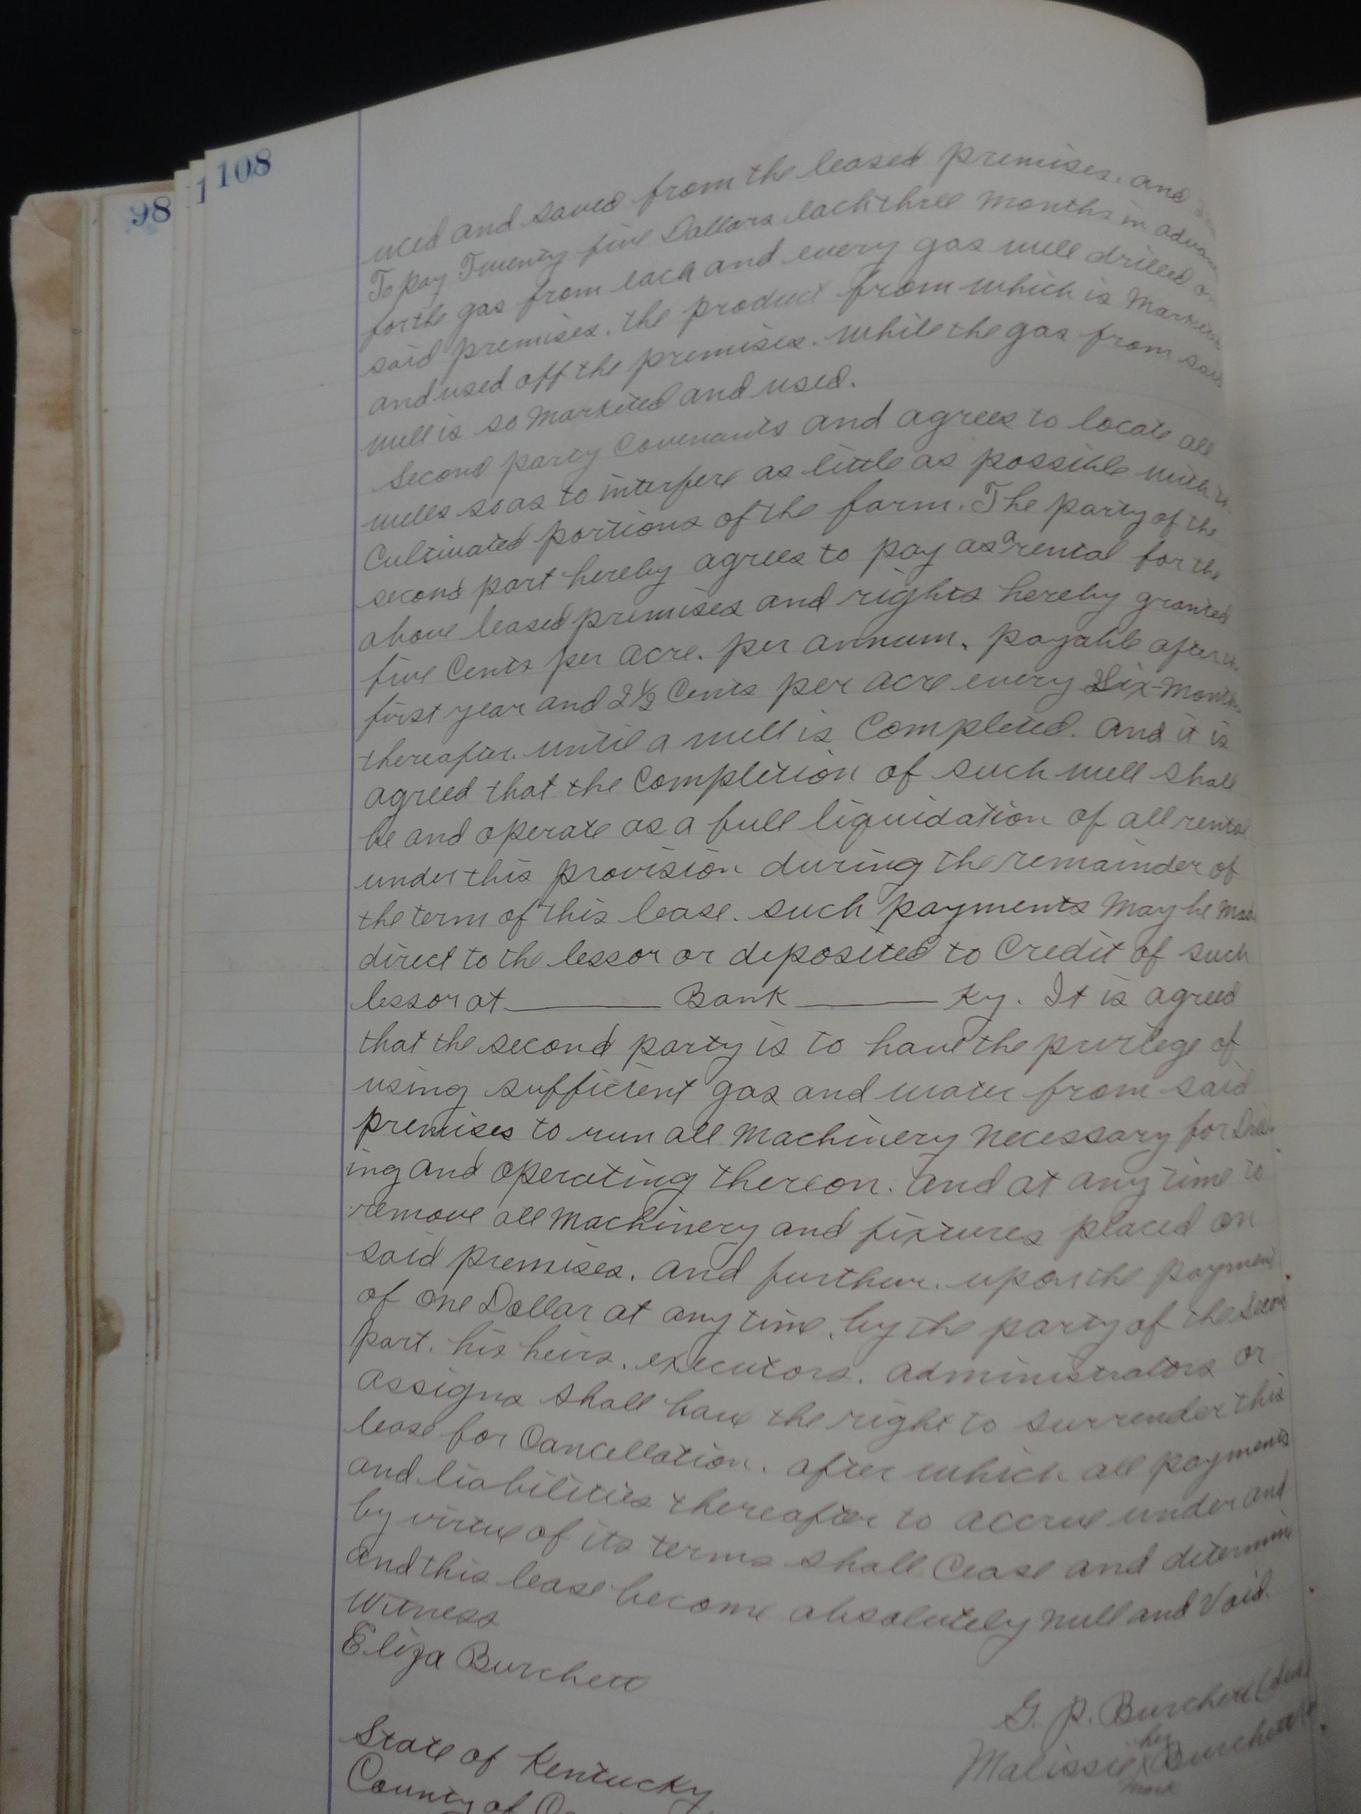 98
1
108
uced and saved from the leased premises. and
To pay Twenty five Dollars each three Months in advan
for the gas from each and every gas well drilled on
said premises. the product from which is Marketed
and used off the premises. while the gas from said
well is so Marketed and used.
Second party Covenants and agrees to locate all
wells so as to interfere as little as possible with the
Cultivated portions of the farm. The party of the
second part hereby agrees to pay as a rental for the
above leased premises and rights hereby granted
five Cents per acre. per annum. payable after the
first year and 2½ Cents per acre every Six-Months
thereafter. until a well is Completed. and it is
agreed that the Completion of such well shall
be and operate as a full liquidation of all rental
under this provision during the remainder of
the term of this lease. such payments May be Made
direct to the lessor or deposited to Credit of such
lessor at ______ Bank ______ Ky. It is agreed
that the second party is to have the privilege of
using sufficient gas and water from said
premises to run all Machinery Necessary for Drill
ing and operating thereon. and at any time to
remove all Machinery and fixtures placed on
said premises. and further. upon the payment
of one Dollar at any time. by the party of the Second
part. his heirs. executors. administrators or
assigns shall have the right to surrender this
lease for Cancellation. after which all payments
and liabilities thereafter to accrue under and
by virtue of its terms shall Cease and determine
and this lease become absolutely Null and Void.
Witness
Eliza Burchett
G. P. Burchett
her
Malissie X Burchett
mark
State of Kentucky
County of